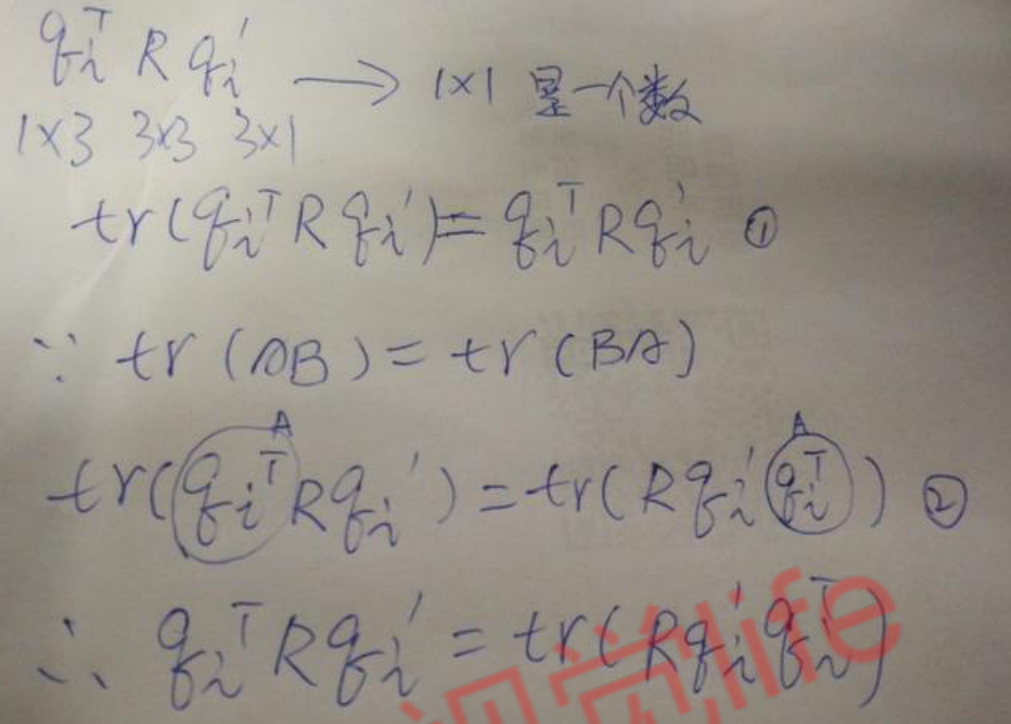 qᵢᵀ R qᵢ' → 1×1 是一个数
1×3 3×3 3×1
tr(qᵢᵀ R qᵢ') = qᵢᵀ R qᵢ' ①
∵ tr(AB) = tr(BA)
A A
tr(qᵢᵀ R qᵢ') = tr(R qᵢ' qᵢᵀ) ②
∴ qᵢᵀ R qᵢ' = tr(R qᵢ' qᵢᵀ)
视觉life